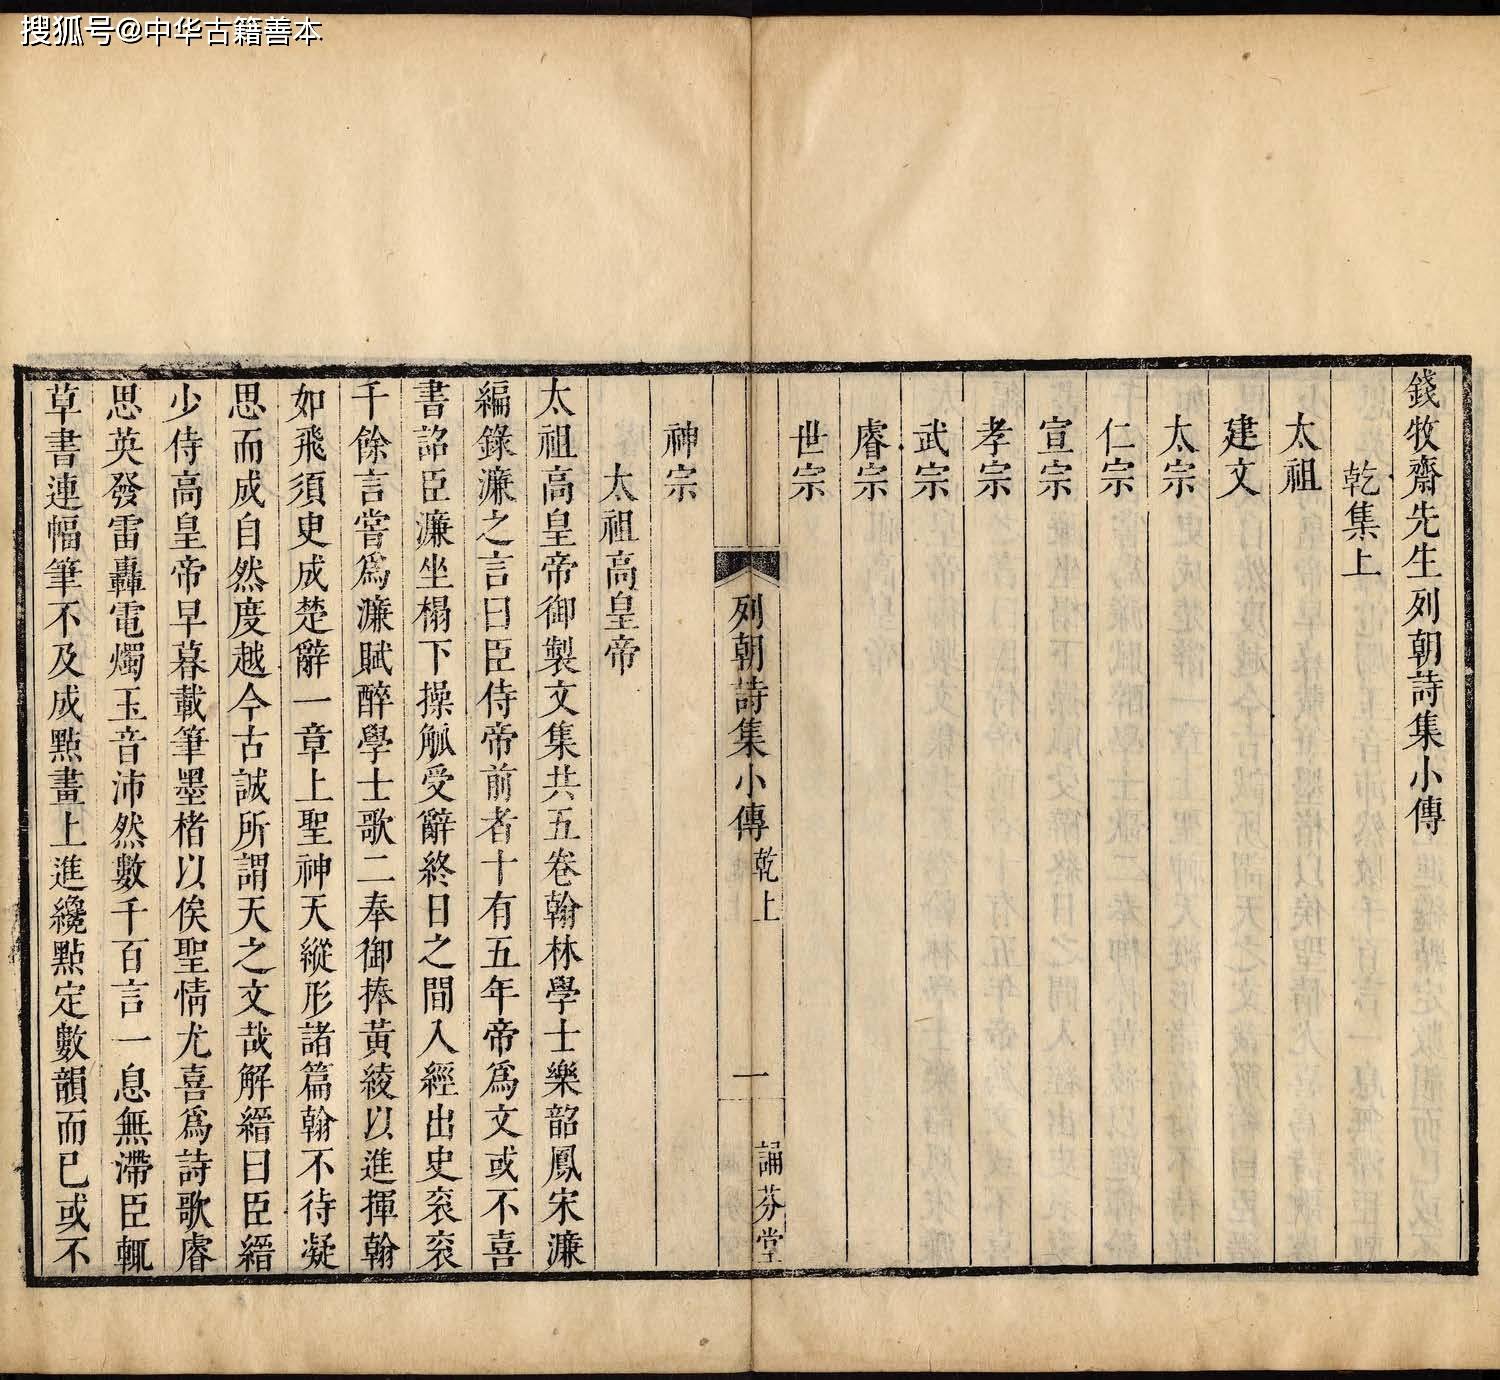 搜狐号@中华古籍善本
錢牧齋先生列朝詩集小傳
乾集上
太祖
建文
太宗
仁宗
宣宗
孝宗
武宗
睿宗
世宗
列朝詩集小傳 乾上 一 誦芬堂
神宗
太祖高皇帝
太祖高皇帝御製文集共五卷翰林學士樂韶鳳宋濂
編錄濂之言曰臣侍帝前者十有五年帝爲文或不喜
書詔臣濂坐榻下操觚受辭終日之間入經出史袞袞
千餘言嘗爲濂賦醉學士歌二奉御捧黃綾以進揮翰
如飛須臾成楚辭一章上聖神天縱形諸篇翰不待凝
思而成自然度越今古誠所謂天之文哉解縉曰臣縉
少侍高皇帝早暮載筆墨楮以俟聖情尤喜爲詩歌睿
思英發雷轟電燭玉音沛然數千百言一息無滯臣輒
草書連幅筆不及成點畫上進纔點定數韻而已或不